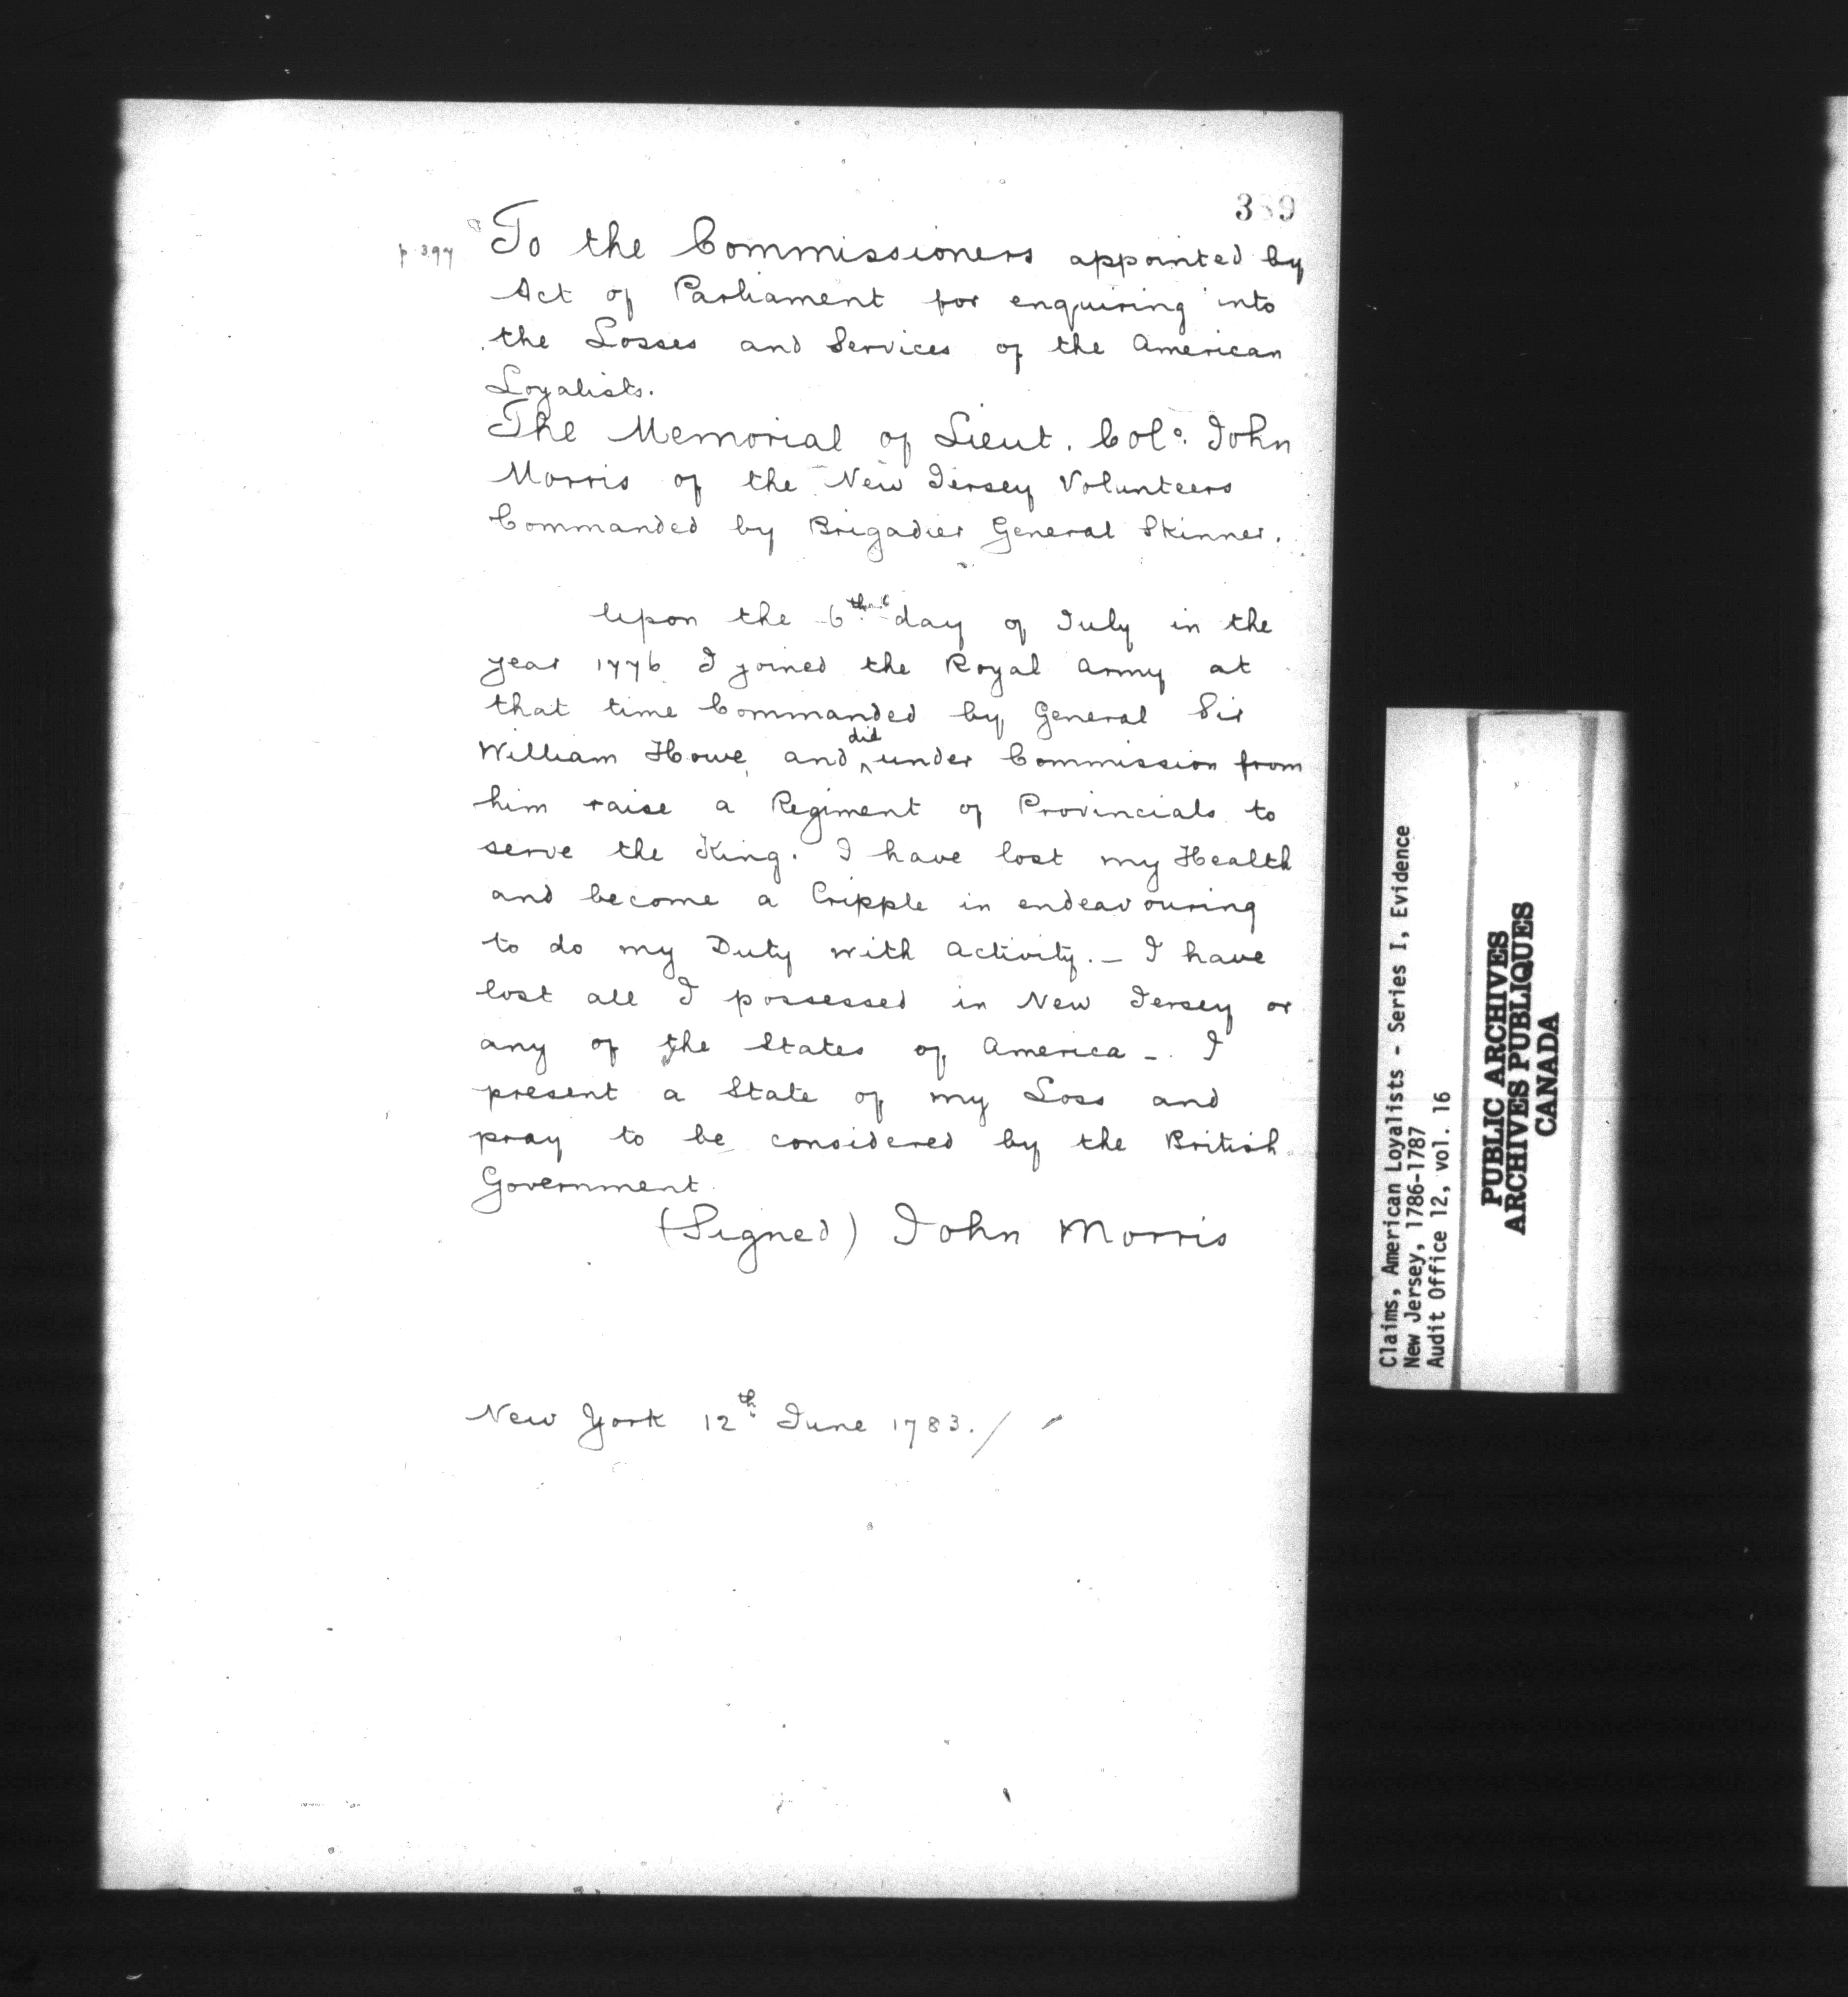 389
p 397
To the Commissioners appointed by
Act of Parliament for enquiring into
the Losses and Services of the American
Loyalists.
The Memorial of Lieut. Colo. John
Morris of the New Jersey Volunteers
Commanded by Brigadier General Skinner.
Upon the 6th day of July in the
year 1776 I joined the Royal Army at
that time Commanded by General Sir
William Howe, and did under Commission from
him raise a Regiment of Provincials to
serve the King. I have lost my Health
and become a Cripple in endeavouring
to do my Duty with activity. - I have
lost all I possessed in New Jersey or
any of the States of America -. I
present a State of my Loss and
pray to be considered by the British
Government.
(Signed) John Morris
New York 12th June 1783./
Claims, American Loyalists - Series I, Evidence
New Jersey, 1786-1787
Audit Office 12, vol. 16
PUBLIC ARCHIVES
ARCHIVES PUBLIQUES
CANADA